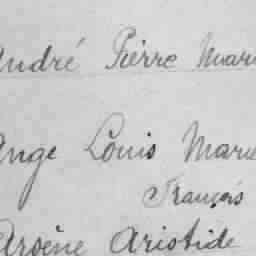 André Pierre Marie
Ange Louis Marie
François
Arsène Aristide